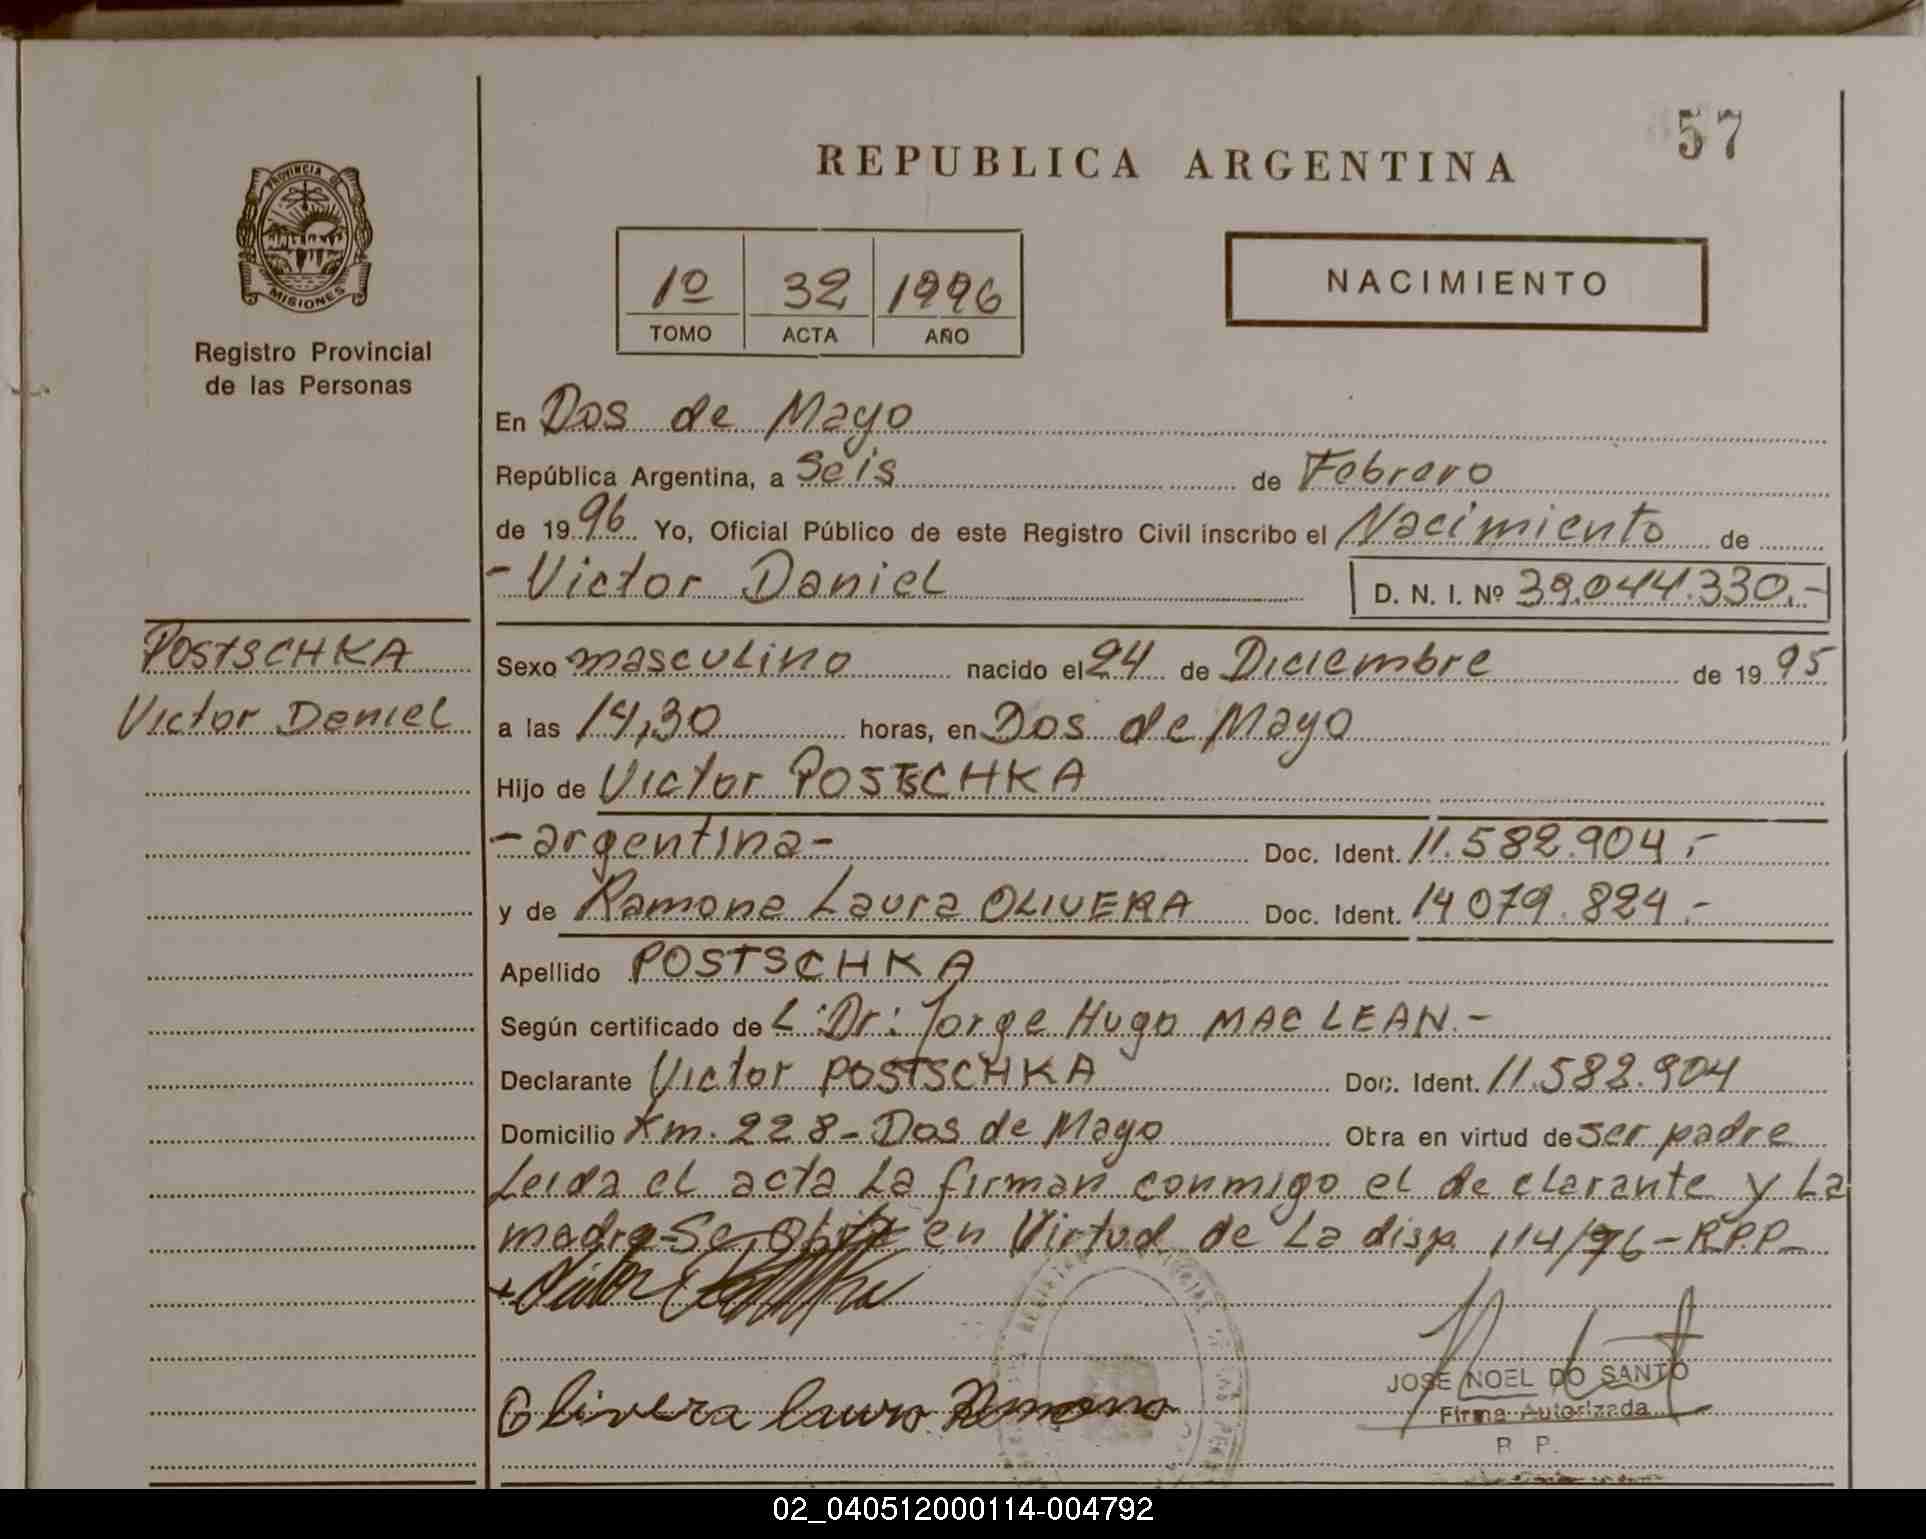 57
REPUBLICA ARGENTINA
PROVINCIA DE
MISIONES
Registro Provincial
de las Personas
1º 32 1996
TOMO ACTA AÑO
NACIMIENTO
En Dos de Mayo
República Argentina, a Seis de Febrero
de 1996 Yo, Oficial Público de este Registro Civil inscribo el Nacimiento de
- Victor Daniel D. N. I. Nº 39.044.330.-
POSTSCHKA
Victor Daniel
Sexo masculino nacido el 24 de Diciembre de 1995
a las 14,30 horas, en Dos de Mayo
Hijo de Victor POSTSCHKA
- argentina - Doc. Ident. 11.582.904.-
y de Ramona Laura OLIVERA Doc. Ident. 14 079.824.-
Apellido POSTSCHKA
Según certificado de L. Dr: Jorge Hugo MAC LEAN.-
Declarante Victor POSTSCHKA Doc. Ident. 11.582.904
Domicilio Km. 228 - Dos de Mayo Obra en virtud de ser padre
Leida el acta La firman conmigo el declarante y La
madre-Se en Virtud de La disp 114/96 - R.P.P-
Olivera Laura Ramona
JOSE NOEL DO SANTO
Firma Autorizada
R. P.
02_040512000114-004792